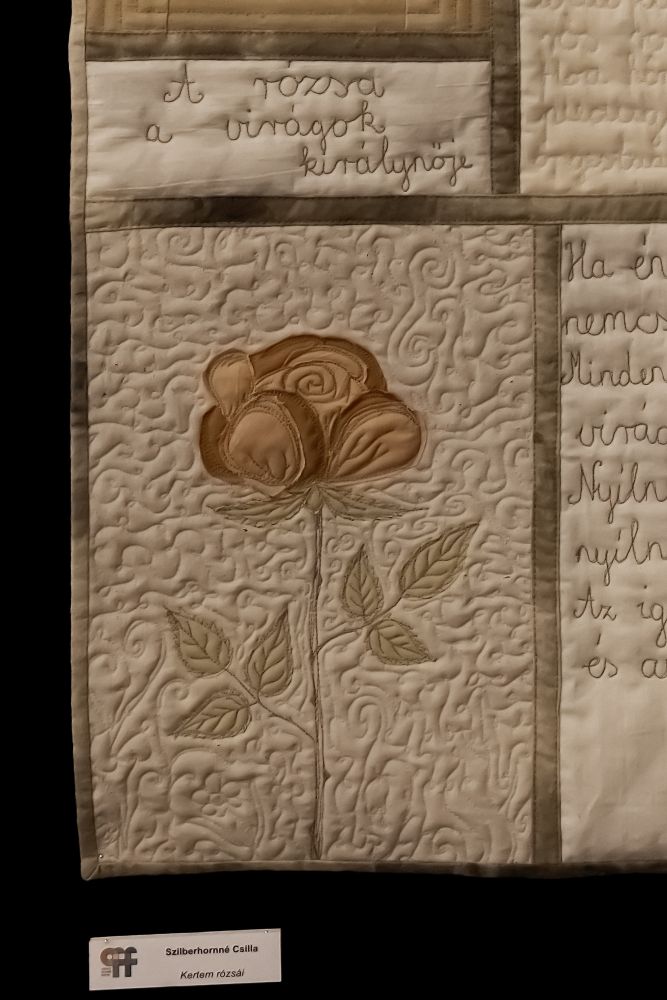 A rózsa
a virágok
királynője
Ha én
nemcs
Minden
virág
Nyíln
nyíln
Az ig
és a
Szilberhornné Csilla
Kertem rózsái